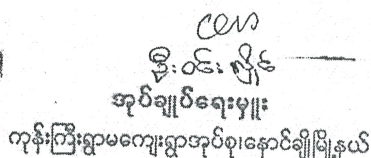 ဦးဝင်းလှိုင်
အုပ်ချုပ်ရေးမှူး
ကုန်းကြီးရွာမကျေးရွာအုပ်စု၊နောင်ချိုမြို့နယ်